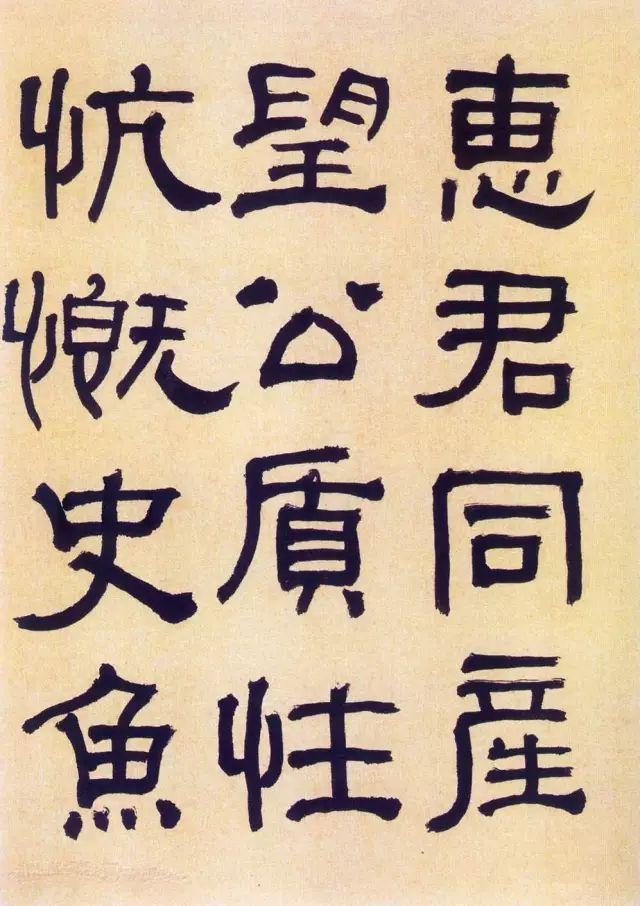 恵君同産
望公質性
忼慨史魚